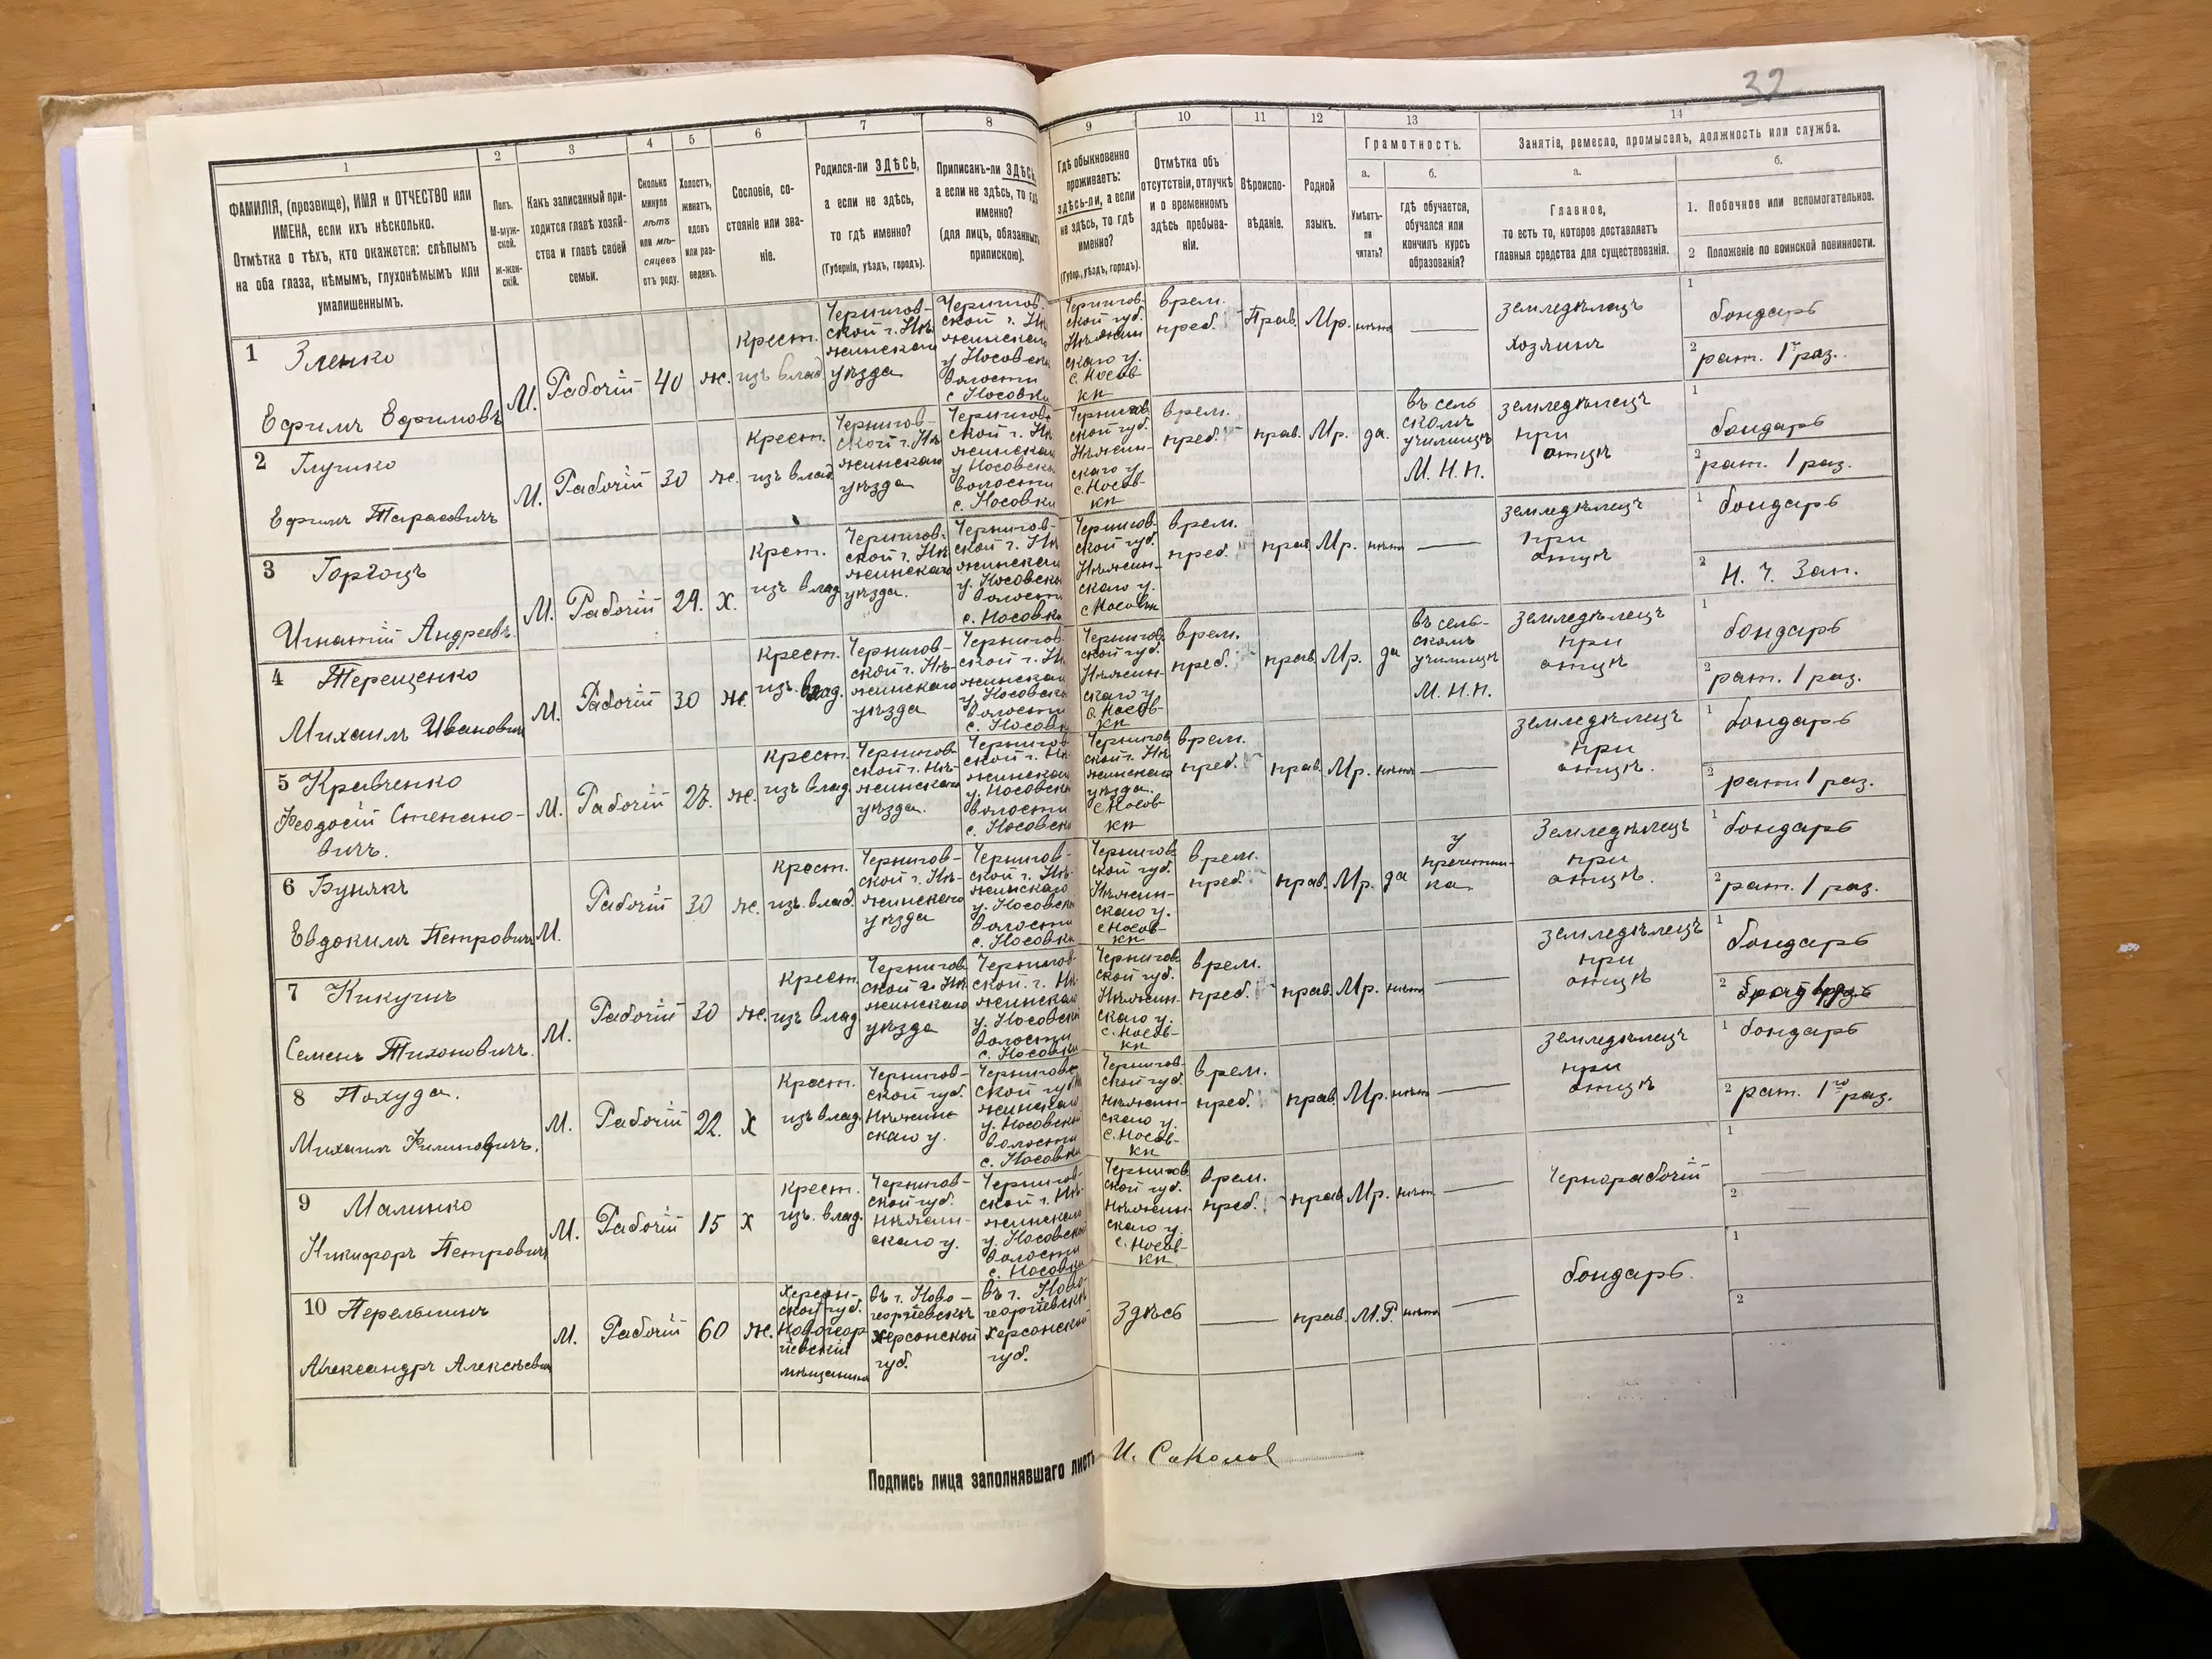 32
1
2
3
4
5
6
7
8
9
10
11
12
13
14
ФАМИЛІЯ, (прозвище), ИМЯ и ОТЧЕСТВО или
ИМЕНА, если ихъ нѣсколько.
Отмѣтка о тѣхъ, кто окажется: слѣпымъ
на оба глаза, нѣмымъ, глухонѣмымъ или
умалишеннымъ.
Полъ.
М-муж-
ской.
Ж-жен-
скій.
Какъ записанный при-
ходится главѣ хозяй-
ства и главѣ своей
семьи.
Сколько
минуло
лѣтъ
или мѣ-
сяцевъ
отъ роду.
Холостъ,
женатъ,
вдовъ
или раз-
веденъ.
Сословіе, со-
стояніе или зва-
ніе.
Родился-ли ЗДѢСЬ,
а если не здѣсь,
то гдѣ именно?
(Губернія, уѣздъ, городъ).
Приписанъ-ли ЗДѢСЬ,
а если не здѣсь, то гдѣ
именно?
(для лицъ, обязанныхъ
припискою).
Гдѣ обыкновенно
проживаетъ:
здѣсь-ли, а если
не здѣсь, то гдѣ
именно?
(Губер., уѣздъ, городъ).
Отмѣтка объ
отсутствіи, отлучкѣ
и о временномъ
здѣсь пребыва-
ніи.
Вѣроиспо-
вѣданіе.
Родной
языкъ.
Грамотность.
а.
Умѣетъ-
ли
читать?
б.
гдѣ обучается,
обучался или
кончилъ курсъ
образованія?
Занятіе, ремесло, промыселъ, должность или служба.
а.
Главное,
то есть то, которое доставляетъ
главныя средства для существованія.
б.
1. Побочное или вспомогательное.
2 Положеніе по воинской повинности.
1 Зленко
Ефимъ Ефимовъ
М.
Рабочій
40
ж.
крест.
изъ влад.
Чернигов-
ской г. Нѣ-
жинскаго
уѣзда
Чернигов-
ской г. Нѣ
жинскаго
у Носовской
волости
с Носовки
Чернигов-
ской губ.
Нѣжин
скаго у.
с. Носов
ки
врем.
преб.
Прав.
Мр.
нѣтъ
земледѣлецъ
хозяинъ
1
бондарь
2
рат. 1го раз.
2 Глушко
Ефимъ Тарасовичъ
М.
Рабочій
30
ж.
крест.
изъ влад.
Чернигов-
ской г. Нѣ
жинскаго
уѣзда
Чернигов-
ской г. Нѣ
жинскаго
у Носовской
волости
с. Носовки
Чернигов
ской губ.
Нѣжин-
скаго у.
с. Носов-
ки
врем.
преб.
прав.
Мр.
да.
въ сель
скомъ
училищѣ
М. Н. П.
земледѣлецъ
при
отцѣ
1
бондарь
2
рат. 1 раз.
3
Игнатій Андреевъ
М.
Рабочій
29.
х.
крест.
изъ влад
Чернигов-
ской г. Нѣ
жинскаго
уѣзда.
Чернигов-
ской г. Нѣ
жинскаго
у. Носовской
волости
с. Носовки
Чернигов-
ской губ.
Нѣжин-
скаго у.
с Носовки
врем.
преб.
прав
Мр.
нѣтъ
земледѣлецъ
при
отцѣ
1
бондарь
2
Н. Ч. Зап.
4 Терещенко
Михаилъ Ивановичъ
М.
Рабочій
30
ж.
крест.
изъ влад.
Чернигов-
ской г. Нѣ-
жинскаго
уѣзда
Чернигов-
ской г. Нѣ
жинскаго
у. Носовской
волости
с. Носовки
Чернигов
ской губ.
Нѣжин-
скаго у,
с. Носов-
ки
врем.
преб.
прав
Мр.
да
въ сель-
скомъ
училищѣ
М. Н. П.
земледѣлецъ
при
отцѣ
1
бондарь
2
рат. 1 раз.
5 Кравченко
Феодосій Степано-
вичъ.
М.
Рабочій
27.
ж.
крест.
изъ влад.
Чернигов-
ской г. Нѣ-
жинскаго
уѣзда.
Чернигов-
ской г. Нѣ
жинскаго
у. Носовской
волости
с. Носовки
Чернигов
ской г. Нѣ
жинскаго
уѣзда.
с Носов-
ки
врем.
преб.
прав.
Мр.
нѣтъ
земледѣлецъ
при
отцѣ.
1
бондарь
2
рат 1 раз.
6 Бунякъ
Евдокимъ Петровичъ
М.
Рабочій
30
ж.
крест.
изъ влад.
Чернигов-
ской г. Нѣ-
жинскаго
уѣзда
Чернигов-
ской г. Нѣ-
жинскаго
у. Носовской
волости
с. Носовки
Чернигов-
ской губ.
Нѣжин-
скаго у.
с Носов-
ки
врем.
преб.
прав.
Мр.
да
у
Земледѣлецъ
при
отцѣ.
1
бондарь
2
рат. 1 раз.
7 Кикушъ
Семенъ Тихоновичъ.
М.
Рабочій
30
ж.
крест
изъ влад.
Чернигов
ской г. Нѣ
жинскаго
уѣзда
Чернигов-
ской. г. Нѣ
жинскаго
у. Носовской
волости
с. Носовки
Чернигов-
ской губ.
Нѣжин-
скаго у.
с. Носов-
ки
врем.
преб.
прав.
Мр.
нѣтъ
земледѣлецъ
при
отцѣ
1
бондарь
2
8 Похуда.
Михаилъ Филиповичъ.
М.
Рабочій
22.
х
крест.
изъ влад.
Чернигов-
ской губ.
Нѣжин-
скаго у.
Чернигов-
ской губ.
жинскаго
у. Носовской
волости
с. Носовки
Чернигов-
ской губ.
нѣжин-
скаго у.
с. Носов-
ки
врем.
преб.
прав.
Мр.
нѣтъ
земледѣлецъ
при
отцѣ
1
бондарь
2
рат. 1го раз.
9 Малинко
Никифоръ Петровичъ
М.
Рабочій
15
х
крест.
изъ влад.
Чернигов-
ской губ.
нѣжин-
скаго у.
Чернигов-
ской г. Нѣ-
жинскаго
у. Носовской
волости
с. Носовки
Чернигов
ской губ.
нѣжин-
скаго у
с. Носов-
ки
врем.
преб.
прав
Мр.
нѣтъ
Чернорабочій
1
2
10 Перельгинъ
Александръ Алексѣевичъ
М.
Рабочій
60
ж.
херсон-
ской губ.
новогеор
гіевскій
мѣщанинъ
въ г. Ново-
георгіевскѣ
херсонской
губ.
въ г. Ново-
георгіевскѣ
херсонской
губ.
Здѣсь
прав.
М.Р.
нѣтъ
бондарь.
1
2
Подпись лица заполнявшаго листъ И. Соколов